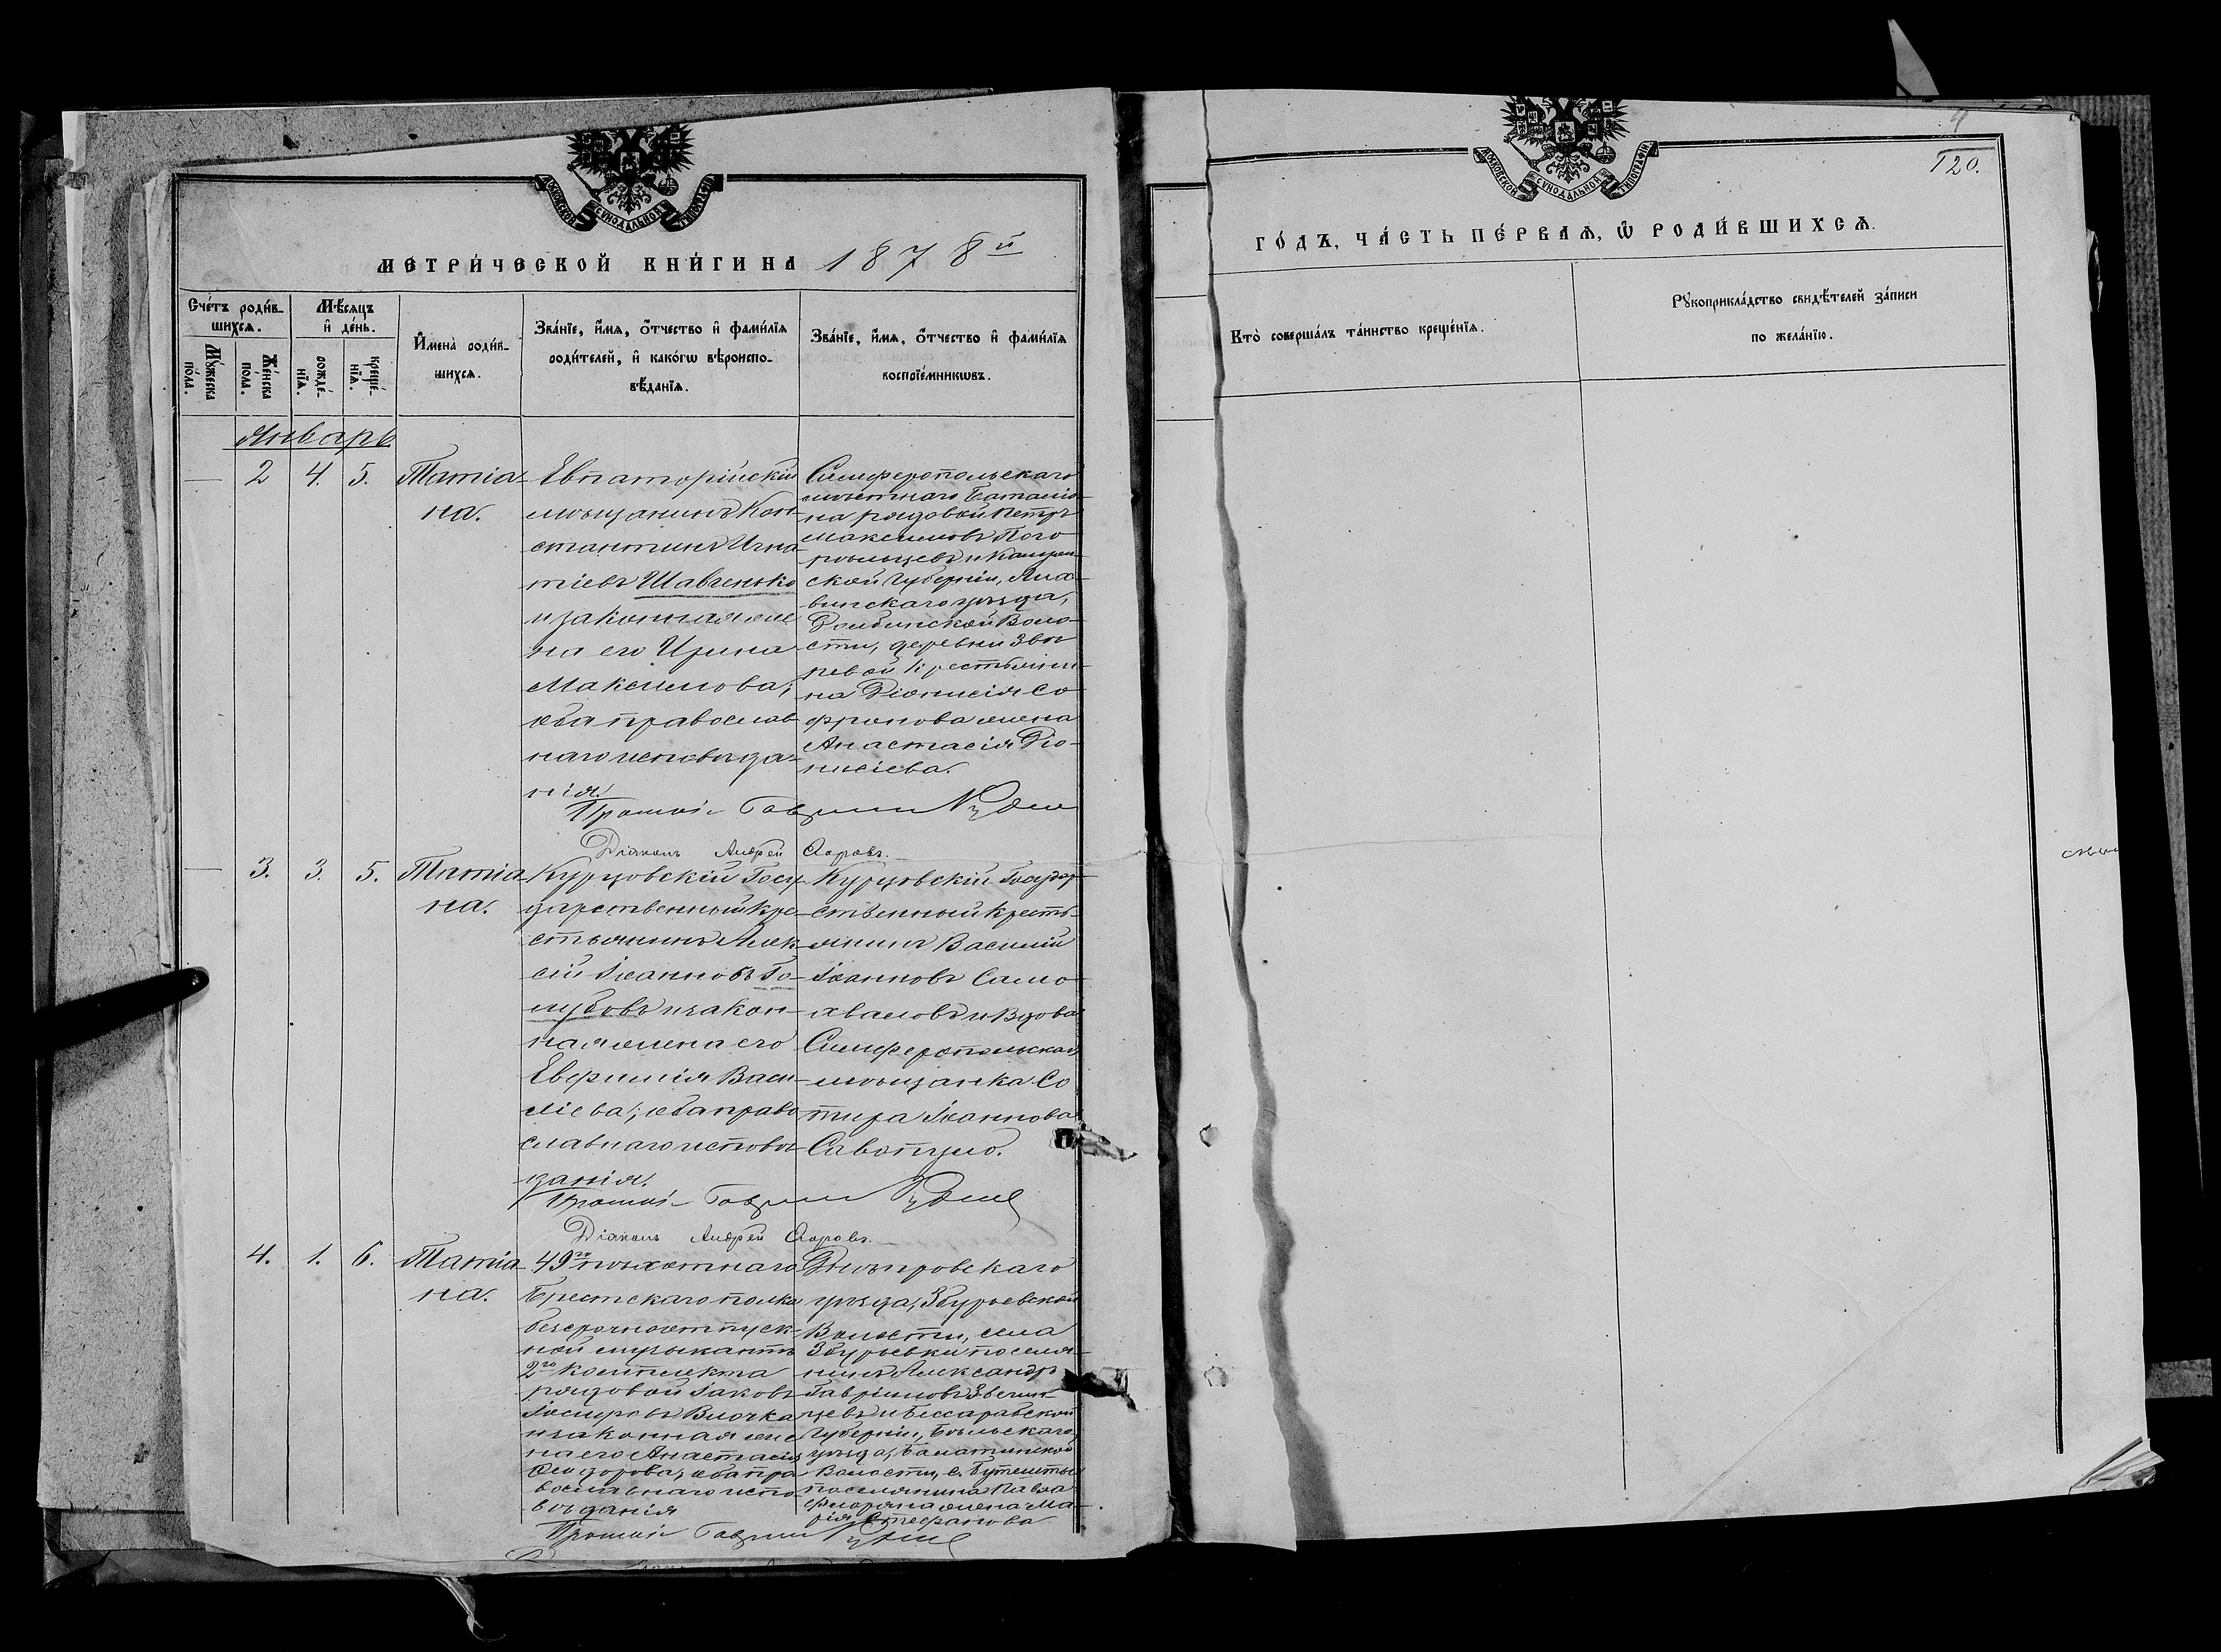 МОСКОВСКОЙ СУНОДАЛЬНОЙ ТИПОГРАФІИ
МЕТРИ́ЧЕСКОЙ КНИ́ГИ НА 1878й
Сче́тъ роди́в-
шихсѧ.
Мꙋ́жеска
по́ла.
Же́нска
по́ла.
Мѣ́сѧцъ
и҆ де́нь.
рожде́-
нїѧ.
креще́-
нїѧ.
И҆мена̀ роди́в-
шихсѧ.
Зва́нїе, и҆́мѧ, ѻ҆́тчество и҆ фами́лїѧ
роди́телей, и҆ како́гѡ вѣроиспо-
вѣ́данїѧ.
Зва́нїе, и҆́мѧ, ѻ҆́тчество и҆ фами́лїѧ
воспрїе́мникѡвъ.
Январь
2 4. 5. Татіа-
на.
Евпаторійскій
мѣщанинъ Кон-
стантинъ Игна-
тіевъ Шавченко
и законная же-
на его Ирина
Максимова;
оба православ-
наго исповѣда-
нія.
Симферопольскаго
мѣстнаго Баталіо-
на рядовой Петръ
Максимовъ Пого
рѣльцевъ и
ской Губерніи,
винскаго уѣзда,
Воло-
сти, деревни
Крестьяни-
на Діонисія Со
фронова жена
Анастасія Діо-
нисіева.
Гавріилъ
Діаконъ Андрей
3. 3. 5. Татіа-
на.
Курцовскій Госу-
дарственный Кре-
стьянинъ Алек-
сій Іоанновъ Го-
лубовъ и закон-
ная жена его
Евфимія Васи-
ліева; оба право
славнаго исповѣ-
данія.
Курцовскій Государ-
ственный Кресть-
янинъ Василій
Іоанновъ Само-
хваловъ и Вдова
Симферопольская
мѣщанка Со
тира Іоаннова
Гавріилъ
Діаконъ Андрей
4. 1. 6. Татіа-
на.
49го пѣхотнаго
Брестскаго полка
безсрочноотпуск-
ной музыкантъ
2го комплекта
рядовой Іаковъ
Іосифовъ
и законная же
на его Анастасія
Ѳеодорова, оба пра
вославнаго испо-
вѣданія
Днѣпровскаго
уѣзда, Збурьевской
Волости, села
Збурьевки поселя-
нинъ Александръ
Гавріиловъ
и Бессарабской
Губерніи, Бѣльскаго
уѣзда,
Волости, с.
поселянина Павла
жена Ма-
рія Стефанова
Гавріилъ
120.
МОСКОВСКОЙ СУНОДАЛЬНОЙ ТИПОГРАФІИ
ГО́ДЪ, ЧА́СТЬ ПЕ́РВАѦ, Ѡ҆ РОДИ́ВШИХСѦ.
Кто̀ соверша́лъ та́инство креще́нїѧ.
Рꙋкоприкла́дство свидѣ́телей за́писи
по жела́нїю.